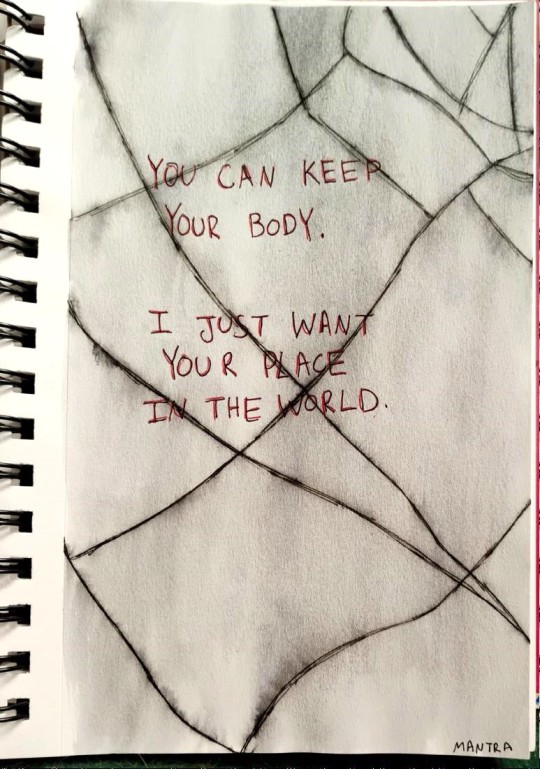 YOU CAN KEEP
YOUR BODY.
I JUST WANT
YOUR PLACE
IN THE WORLD.
MANTRA